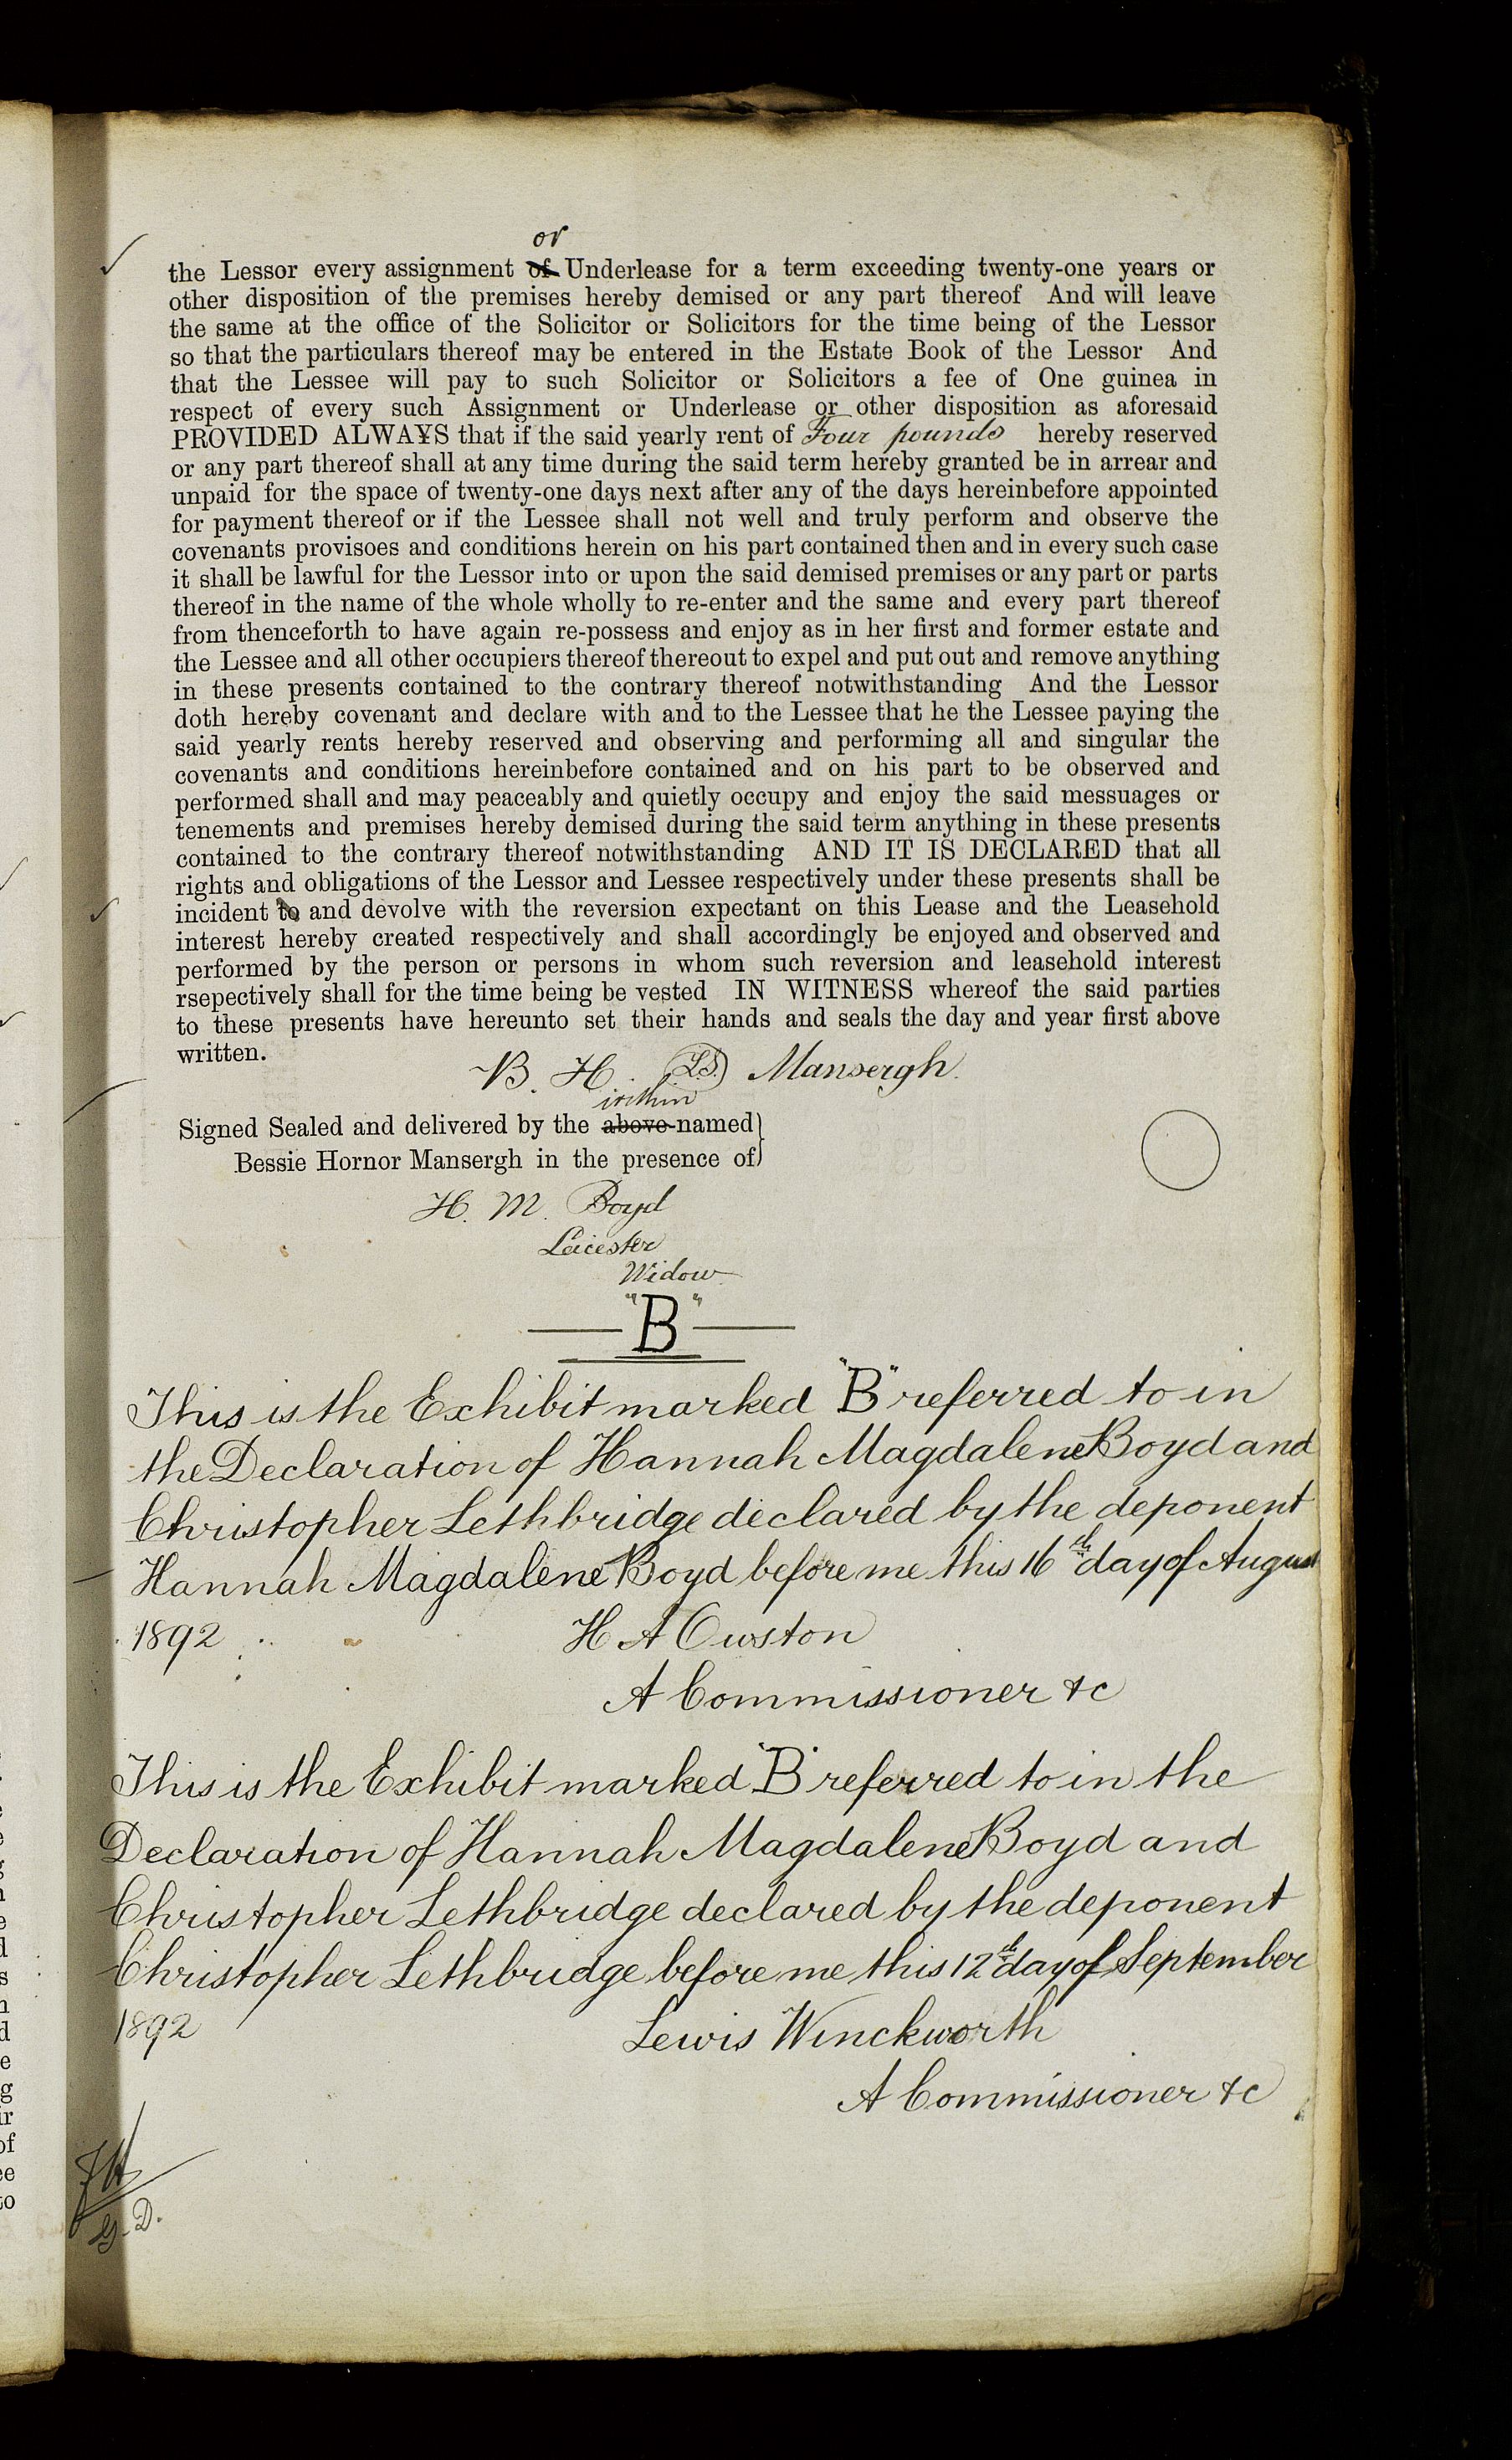 or
the Lessor every assignment of Underlease for a term exceeding twenty-one years or
other disposition of the premises hereby demised or any part thereof And will leave
the same at the office of the Solicitor or Solicitors for the time being of the Lessor
so that the particulars thereof may be entered in the Estate Book of the Lessor And
that the Lessee will pay to such Solicitor or Solicitors a fee of One guinea in
respect of every such Assignment or Underlease or other disposition as aforesaid
PROVIDED ALWAYS that if the said yearly rent of Four pounds hereby reserved
or any part thereof shall at any time during the said term hereby granted be in arrear and
unpaid for the space of twenty-one days next after any of the days hereinbefore appointed
for payment thereof or if the Lessee shall not well and truly perform and observe the
covenants provisoes and conditions herein on his part contained then and in every such case
it shall be lawful for the Lessor into or upon the said demised premises or any part or parts
thereof in the name of the whole wholly to re-enter and the same and every part thereof
from thenceforth to have again re-possess and enjoy as in her first and former estate and
the Lessee and all other occupiers thereof thereout to expel and put out and remove anything
in these presents contained to the contrary thereof notwithstanding And the Lessor
doth hereby covenant and declare with and to the Lessee that he the Lessee paying the
said yearly rents hereby reserved and observing and performing all and singular the
covenants and conditions hereinbefore contained and on his part to be observed and
performed shall and may peaceably and quietly occupy and enjoy the said messuages or
tenements and premises hereby demised during the said term anything in these presents
contained to the contrary thereof notwithstanding AND IT IS DECLARED that all
rights and obligations of the Lessor and Lessee respectively under these presents shall be
incident to and devolve with the reversion expectant on this Lease and the Leasehold
interest hereby created respectively and shall accordingly be enjoyed and observed and
performed by the person or persons in whom such reversion and leasehold interest
rsepectively shall for the time being be vested IN WITNESS whereof the said parties
to these presents have hereunto set their hands and seals the day and year first above
written.
B. H. L.S. Mansergh.
within
Signed Sealed and delivered by the above-named
Bessie Hornor Mansergh in the presence of
H. M. Boyd
Leicester
Widow
"B"
This is the Exhibit marked "B" referred to in
the Declaration of Hannah Magdalene Boyd and
Christopher Lethbridge declared by the deponent
Hannah Magdalene Boyd before me this 16th day of August
1892
H A Owston
A Commissioner &c
This is the Exhibit marked "B" referred to in the
Declaration of Hannah Magdalene Boyd and
Christopher Lethbridge declared by the deponent
Christopher Lethbridge before me this 12th day of September
1892
Lewis Winckworth
A Commissioner &c